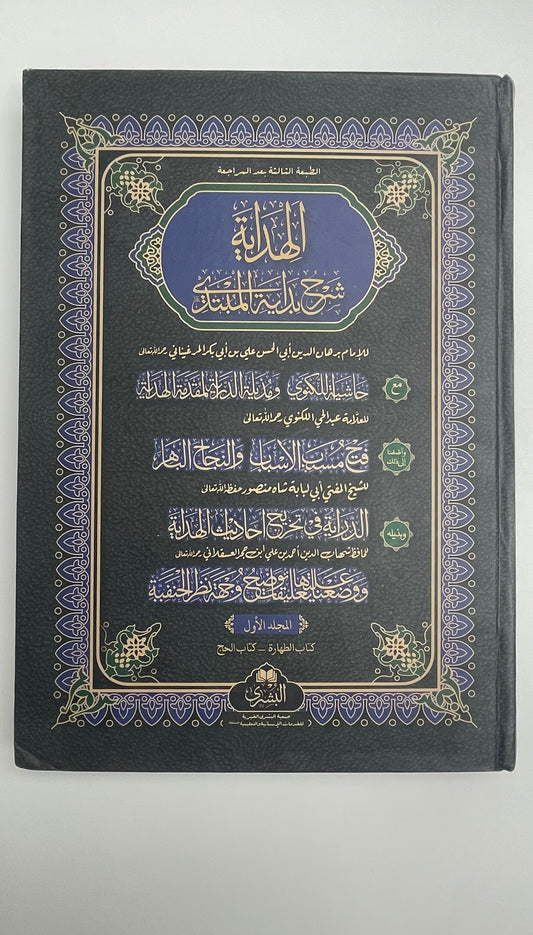 الطبعة الثالثة بعد المراجعة
الهداية
شرح بداية المبتدي
للإمام برهان الدين أبي الحسن علي بن أبي بكر المرغيناني رحمه الله تعالى
مع
حاشية اللكنوي ومذيلة الدراية لمقدمة الهداية
للعلامة عبد الحي اللكنوي رحمه الله تعالى
وأضفنا إلى ذلك
فتح مسبب الأسباب والنجاح الباهر
للشيخ المفتي أبي لبابة شاه منصور حفظه الله تعالى
وبذيله
الدراية في تخريج أحاديث الهداية
للحافظ شهاب الدين أحمد بن علي ابن حجر العسقلاني رحمه الله تعالى
ووضعنا عليها تعليقات توضيح وجهة نظر الحنفية
المجلد الأول
كتاب الطهارة - كتاب الحج
البشرى
جمعية البشرى الخيرية
للخدمات الإنسانية والتعليمية